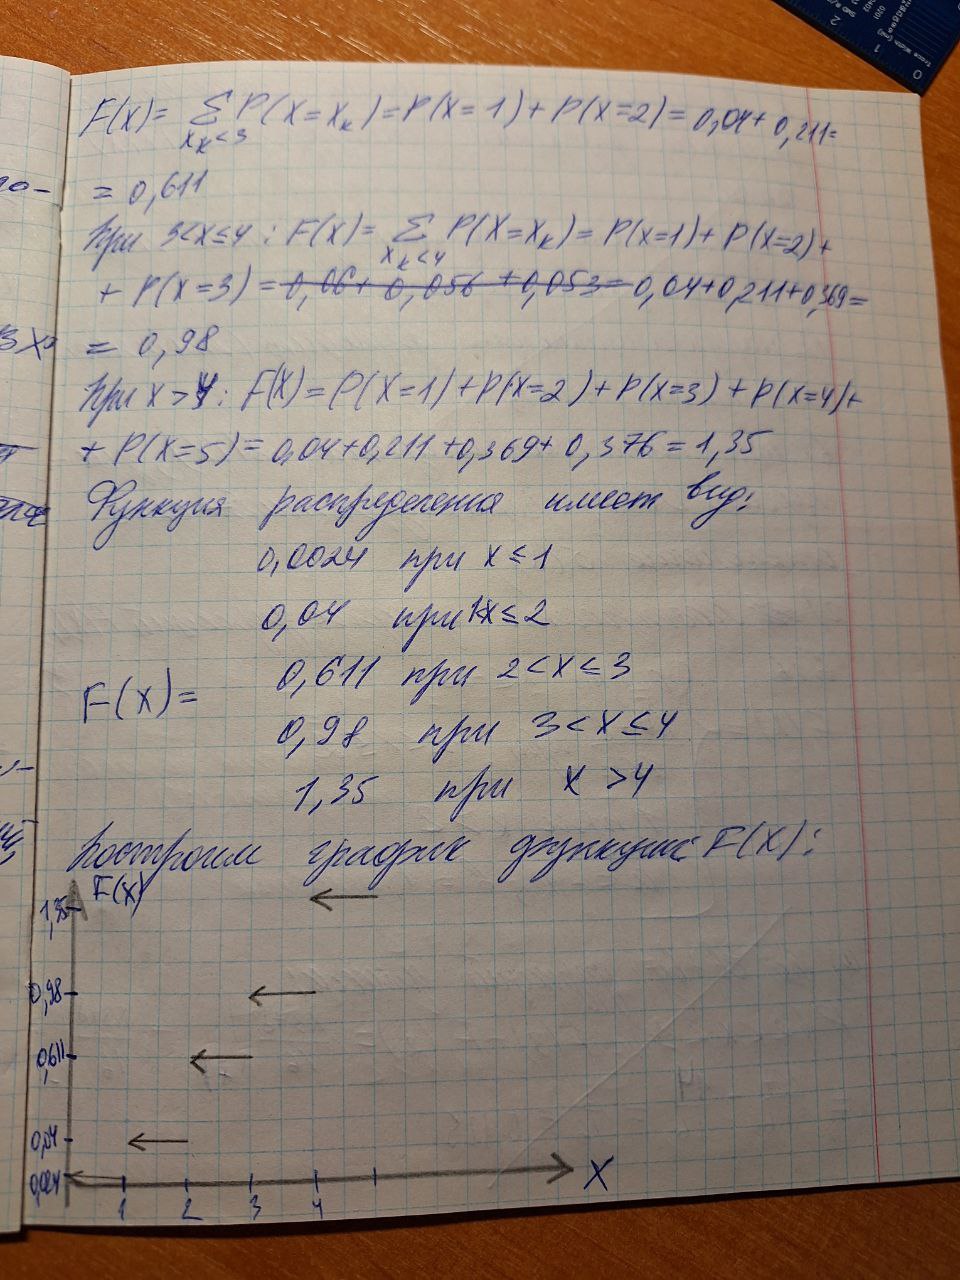 F(x)= Σ P(X=xₖ)=P(x=1)+P(x=2)=0,04+0,211=
xₖ<3
=0,611
При 3<x≤4: F(x)= Σ P(X=xₖ)=P(x=1)+P(x=2)+
xₖ<4
+P(x=3)=0,06+0,056+0,053=0,04+0,211+0,369=
=0,98
При x>4: F(x)=P(X=1)+P(x=2)+P(x=3)+P(x=4)+
+P(x=5)=0,04+0,211+0,369+0,376=1,35
Функция распределения имеет вид:
0,0024 при x≤1
0,04 при 1<x≤2
0,611 при 2<x≤3
F(x)=
0,98 при 3<x≤4
1,35 при x>4
Построим график функции F(x):
F(x)
1,35
0,98
0,611
0,04
0,0024
X
1 2 3 4